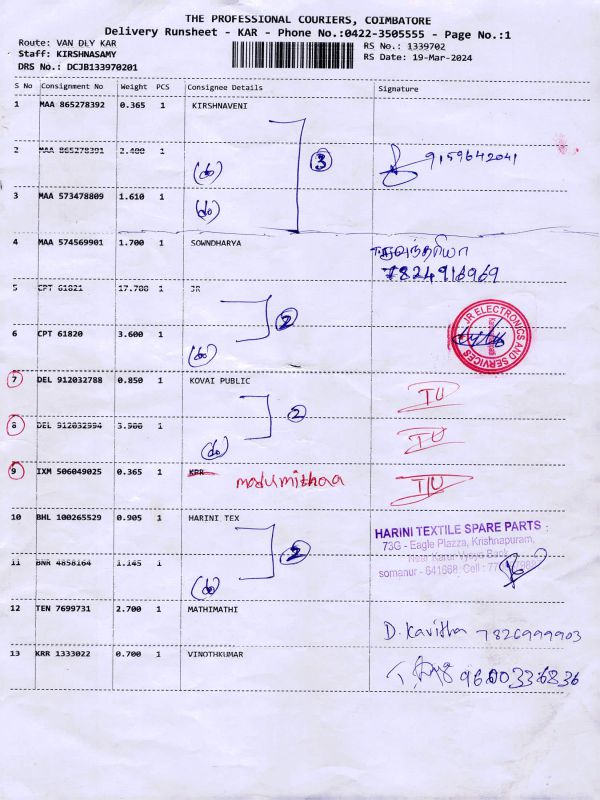 THE PROFESSIONAL COURIERS, COIMBATORE
Delivery Runsheet - KAR - Phone No.:0422-3505555 - Page No.:1
Route: VAN DLY KAR
RS No.: 1339702
Staff: KIRSHNASAMY
RS Date: 19-Mar-2024
DRS No.: DCJB133970201
S No Consignment No Weight PCS Consignee Details Signature
1 MAA 865278392 0.365 1 KIRSHNAVENI
2 MAA 865278391 2.480 1 (do) 3 9159642041
3 MAA 573478809 1.610 1 (do)
4 MAA 574569901 1.700 1 SOWNDHARYA
7824916969
5 CPT 61821 17.700 1 JR
2
JR ELECTRONICS AND SERVICES
6 CPT 61820 3.600 1 (do)
7 DEL 912032788 0.850 1 KOVAI PUBLIC
2
8 DEL 912032994 3.900 1 (do)
9 IXM 506049025 0.365 1 KPR madumithaa
10 BHL 100265529 0.905 1 HARINI TEX
HARINI TEXTILE SPARE PARTS :
73G - Eagle Plazza, Krishnapuram,
2
somanur - 641668. Cell :
11 BNR 4858164 1.145 1 (do)
12 TEN 7699731 2.700 1 MATHIMATHI D. Kavitha 7826999903
13 KRR 1333022 0.700 1 VINOTHKUMAR 9600336836